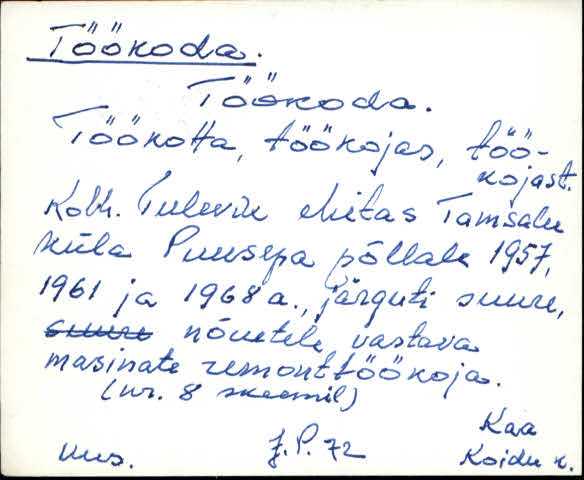 Töökoda.
Töökoda.
Töökotta, töökojas, töö-
kojast.
Kolh. Tulevik ehitas Tamsalu
küla Puusepa põllale 1957,
1961 ja 1968 a., järguti suure,
suure nõuetele vastava
masinate remonttöökoja.
(nr. 8 skeemil)
Kaa
uus. J. P. 72 Koidu k.